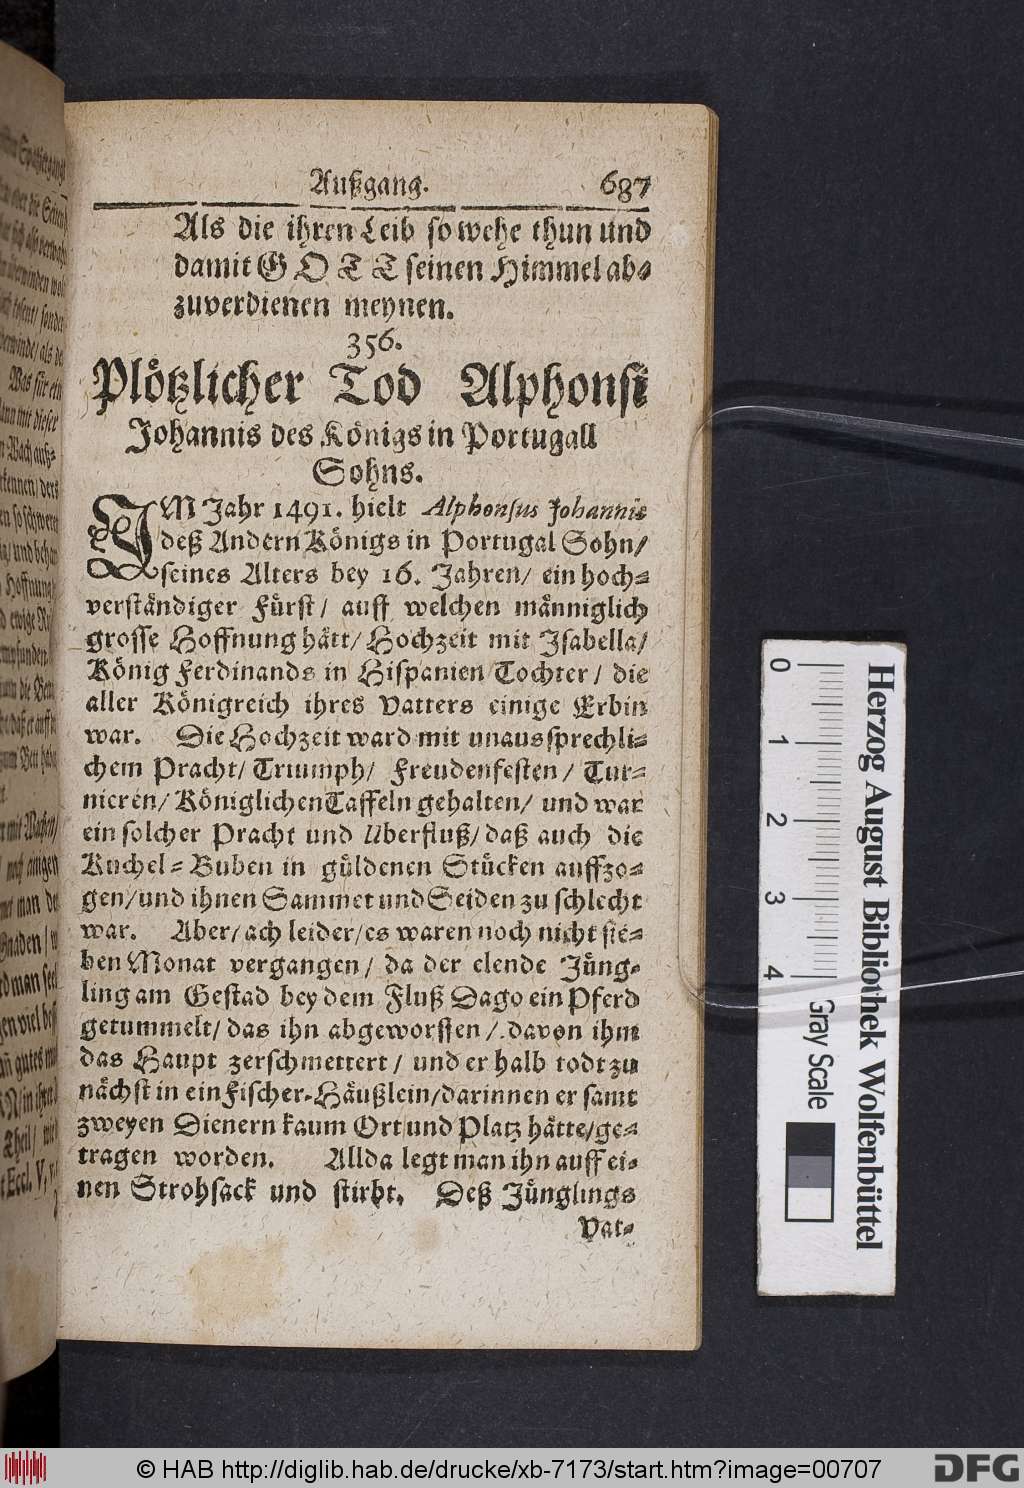 Außgang. 687
Als die ihren Leib so wehe thun und
damit GOTT seinen Himmel ab-
zuverdienen meynen.
356.
Plötzlicher Tod Alphonsi
Johannis des Königs in Portugall
Sohns.
IM Jahr 1491. hielt Alphonsus Johannis
deß Andern Königs in Portugal Sohn/
seines Alters bey 16. Jahren/ ein hoch-
verständiger Fürst/ auff welchen männiglich
grosse Hoffnung hätt/ Hochzeit mit Isabella/
König Ferdinands in Hispanien Tochter/ die
aller Königreich ihres Vatters einige Erbin
war. Die Hochzeit ward mit unaussprechli-
chem Pracht/ Triumph/ Freudenfesten/ Tur-
nieren/ Königlichen Taffeln gehalten/ und war
ein solcher Pracht und Uberfluß/ daß auch die
Kuchel-Buben in güldenen Stücken auffzo-
gen/ und ihnen Sammet und Seiden zu schlecht
war. Aber/ ach leider/ es waren noch nicht sie-
ben Monat vergangen/ da der elende Jüng-
ling am Gestad bey dem Fluß Dago ein Pferd
getummelt/ das ihn abgeworffen/ davon ihm
das Haupt zerschmettert/ und er halb todt zu
nächst in ein Fischer-Häußlein/ darinnen er samt
zweyen Dienern kaum Ort und Platz hätte/ ge-
tragen worden. Allda legt man ihn auff ei-
nen Strohsack und stirbt. Deß Jünglings
Vat-
Herzog August Bibliothek Wolfenbüttel
0 1 2 3 4
Gray Scale
© HAB http://diglib.hab.de/drucke/xb-7173/start.htm?image=00707
DFG